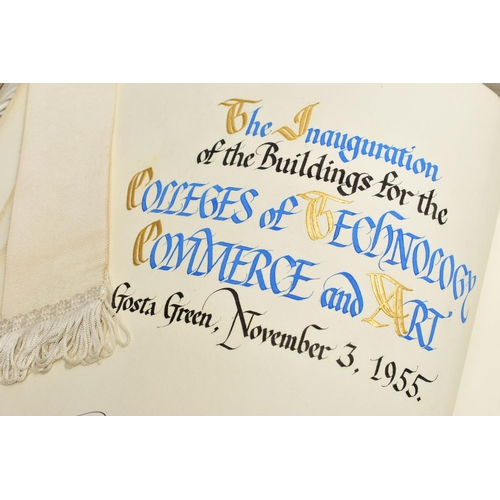 The Inauguration
of the Buildings for the
COLLEGES of TECHNOLOGY
COMMERCE and ART
Gosta Green, November 3, 1955.